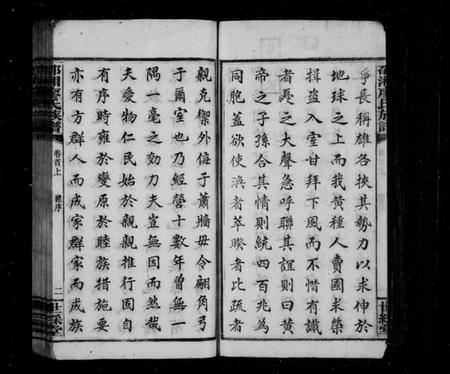 爭長稱雄各挾其勢力以求伸於
地球之上而我黃種人賣國求榮
揖盜入室甘拜下風而不惜有識
者憂之大聲急呼聯其誼則曰黃
帝之子孫合其情則統四百兆為
同胞蓋欲使渙者萃睽者比疏者
親克禦外侮于蕭牆毋令翩角弓
于爾室也乃經營十數年曾無一
隅一毫之効力夫豈無因而然哉
夫愛物仁民始於親親推行固自
有序時雍於變原於睦族措施要
亦有方群人而成家群家而成族
廖氏族譜
卷首上
總序
二
世綵堂